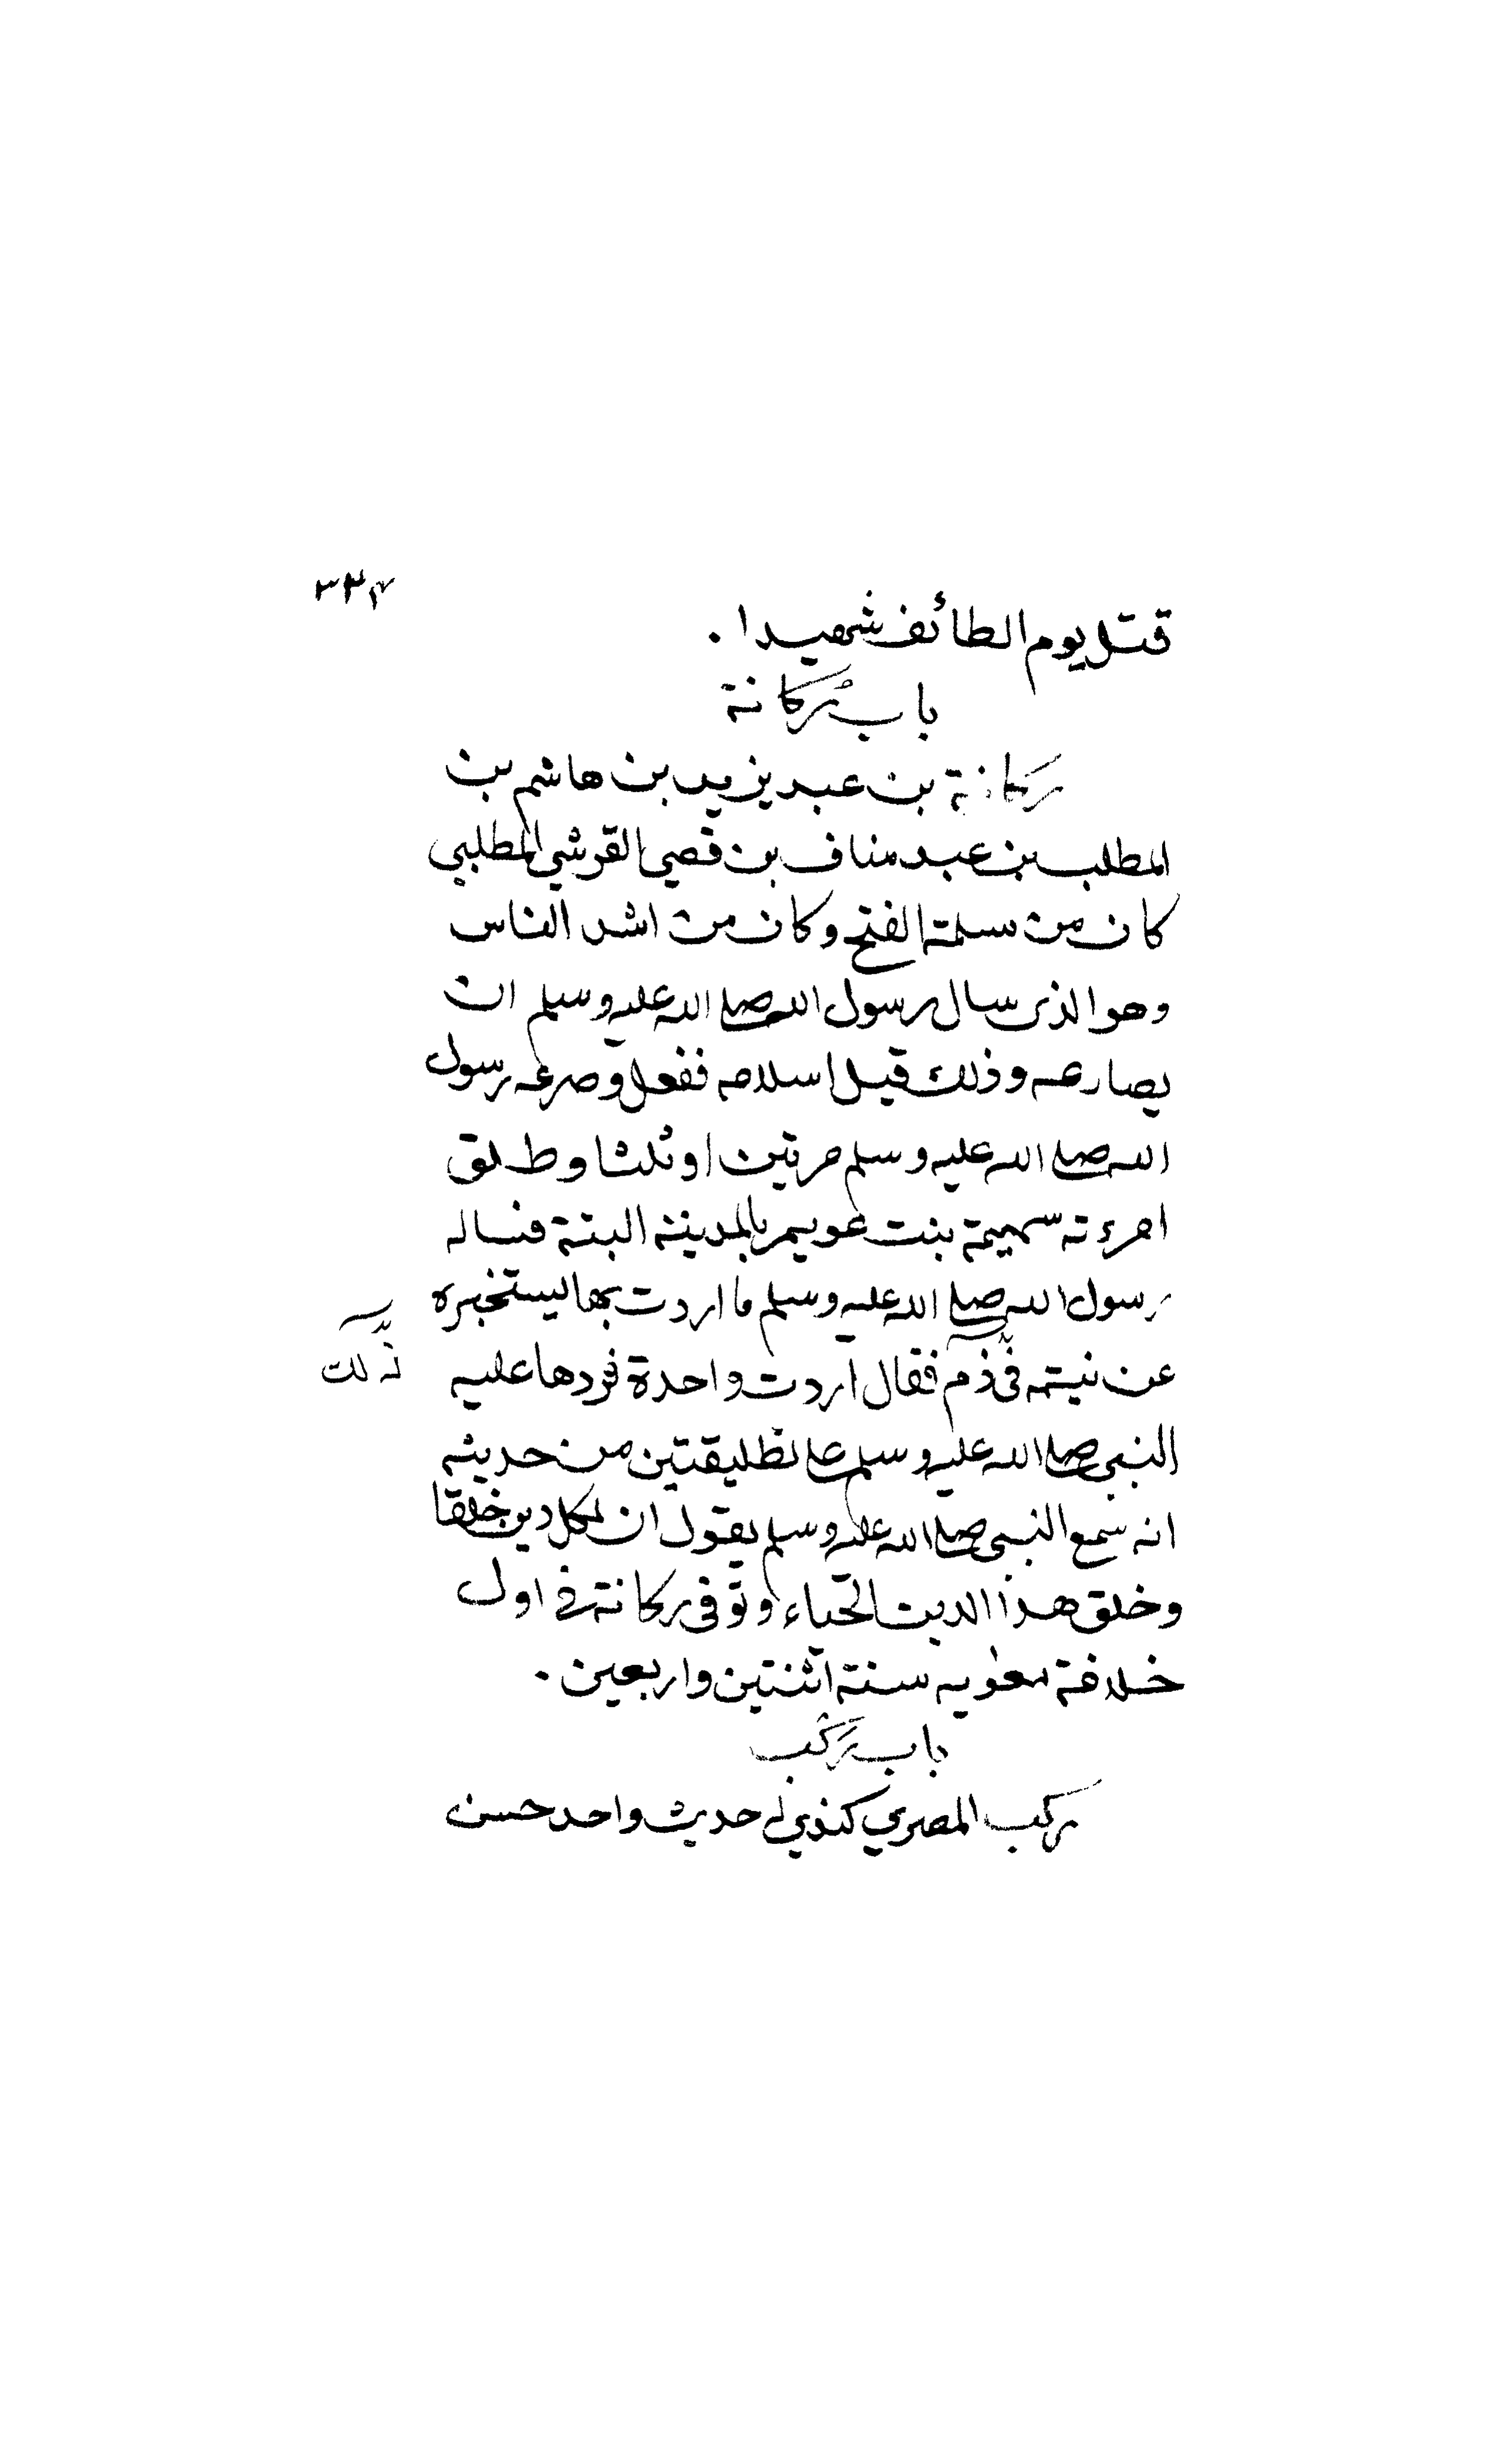 قتل يوم الطائف شهيدا .
باب رُكانة
ركانة بن عبد يزيد بن هاشم بن
المطلب بن عبد مناف بن قصي القرشي المطلبي
كان من مسلمة الفتح وكان من اشد الناس
وهو الذى سال رسول الله صلى الله عليه وسلم ان
يصارعه وذلك قبل اسلامه ففعل وصرعه رسول
الله صلى الله عليه وسلم مرتين او ثلثا وطلق
امرءته سهيمة بنت عويمر بالمدينة البتة فساله
رسول الله صلى الله عليه وسلم ما اردت بها يستخبره
عن نيته فى فقال اردت واحدة فردها عليه
ذلك
النبى صلى الله عليه وسلم على تطليقتين من حديثه
انه سمع النبى صلى الله عليه وسلم يقول ان لكل دين خلقا
وخلق هذا الدين الحياء وتوفى ركانة في اول
خلافة معوية سنة اثنتين واربعين .
باب رَكْب
ركب المصري كندي له حديث واحد حسن